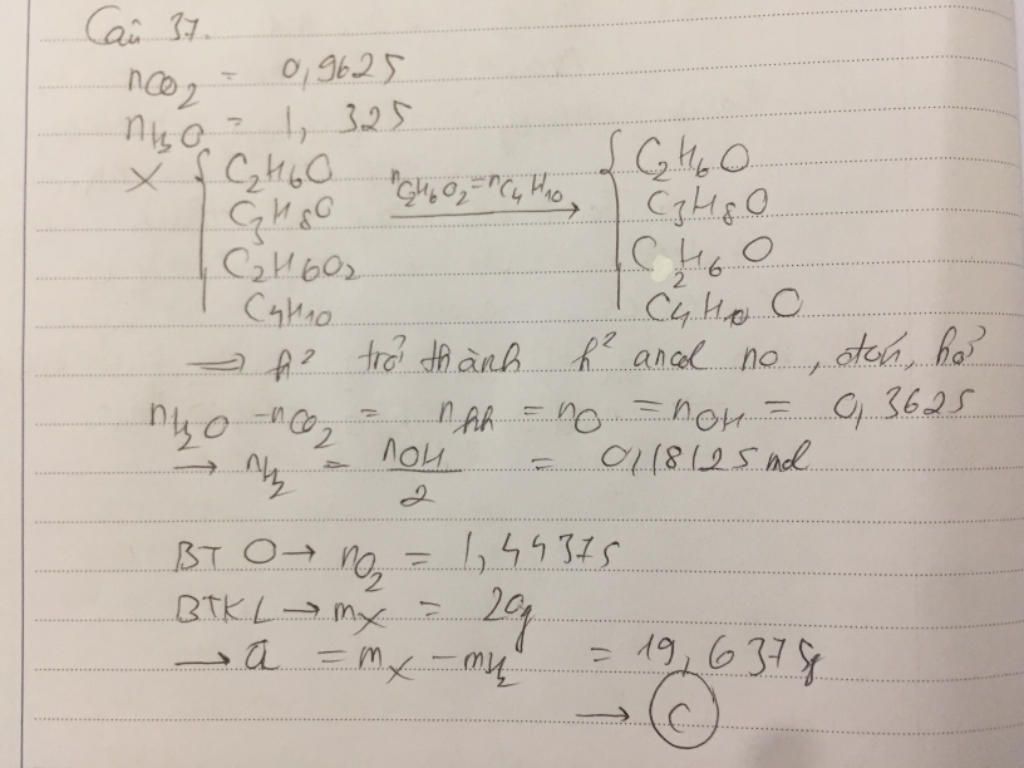 Câu 37.
nCO2 = 0,9625
nH2O = 1,325
X { C2H6O nC2H6O2=nC4H10 → { C2H6O
C3H8O C3H8O
C2H6O2 C2H6O
C4H10 C4H10O
⇒ h² trở thành h² ancol no, đơn, hở
nH2O - nCO2 = nhh = nO = nOH = 0,3625
→ nH2 = nOH/2 = 0,18125 mol
BT O → nO2 = 1,44375
BTKL → mX = 20g
→ a = mX - mH2 = 19,6375g
→ C